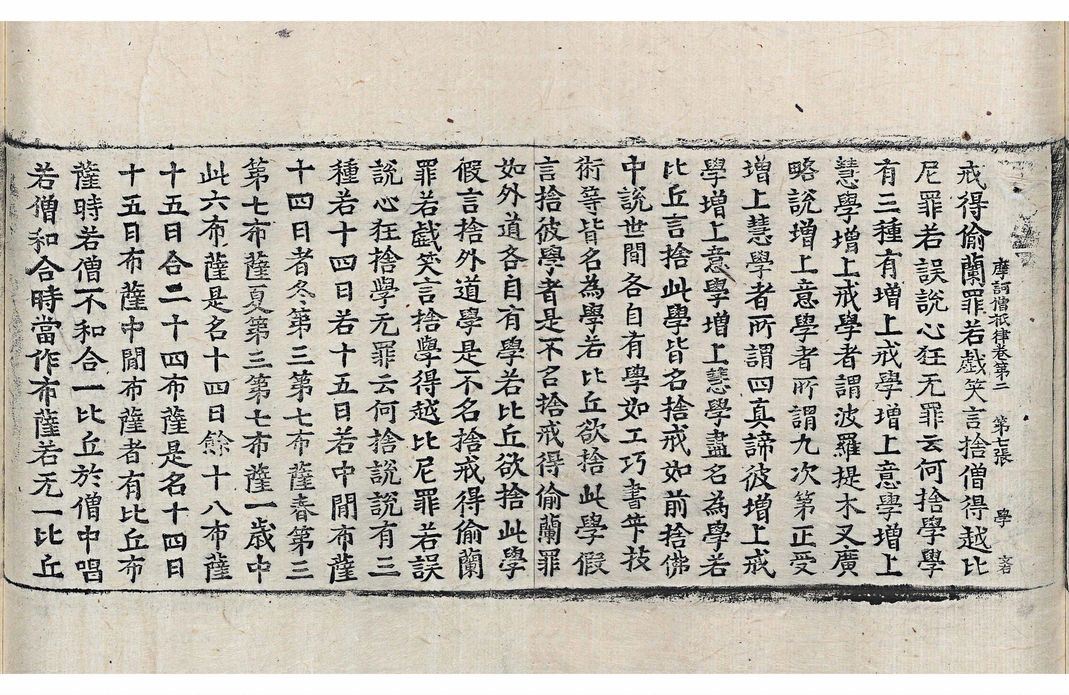 摩訶僧祇律卷第二　第七張　學
戒得偷蘭罪若戲笑言捨僧得越比
尼罪若誤說心狂无罪云何捨學學
有三種有增上戒學增上意學增上
慧學增上戒學者謂波羅提木叉廣
略說增上意學者所謂九次第正受
增上慧學者所謂四真諦彼增上戒
學增上意學增上慧學盡名為學若
比丘言捨此學皆名捨戒如前捨佛
中說世間各自有學如工巧書笇技
術等皆名為學若比丘欲捨此學假
言捨彼學者是不名捨戒得偷蘭罪
如外道各自有學若比丘欲捨此學
假言捨外道學是不名捨戒得偷蘭
罪若戲笑言捨學得越比尼罪若誤
說心狂捨學无罪云何捨說說有三
種若十四日若十五日若中閒布薩
十四日者冬第三第七布薩春第三
第七布薩夏第三第七布薩一歲中
此六布薩是名十四日餘十八布薩
十五日合二十四布薩是名十四日
十五日布薩中閒布薩者有比丘布
薩時若僧不和合一比丘於僧中唱
若僧和合時當作布薩若无一比丘